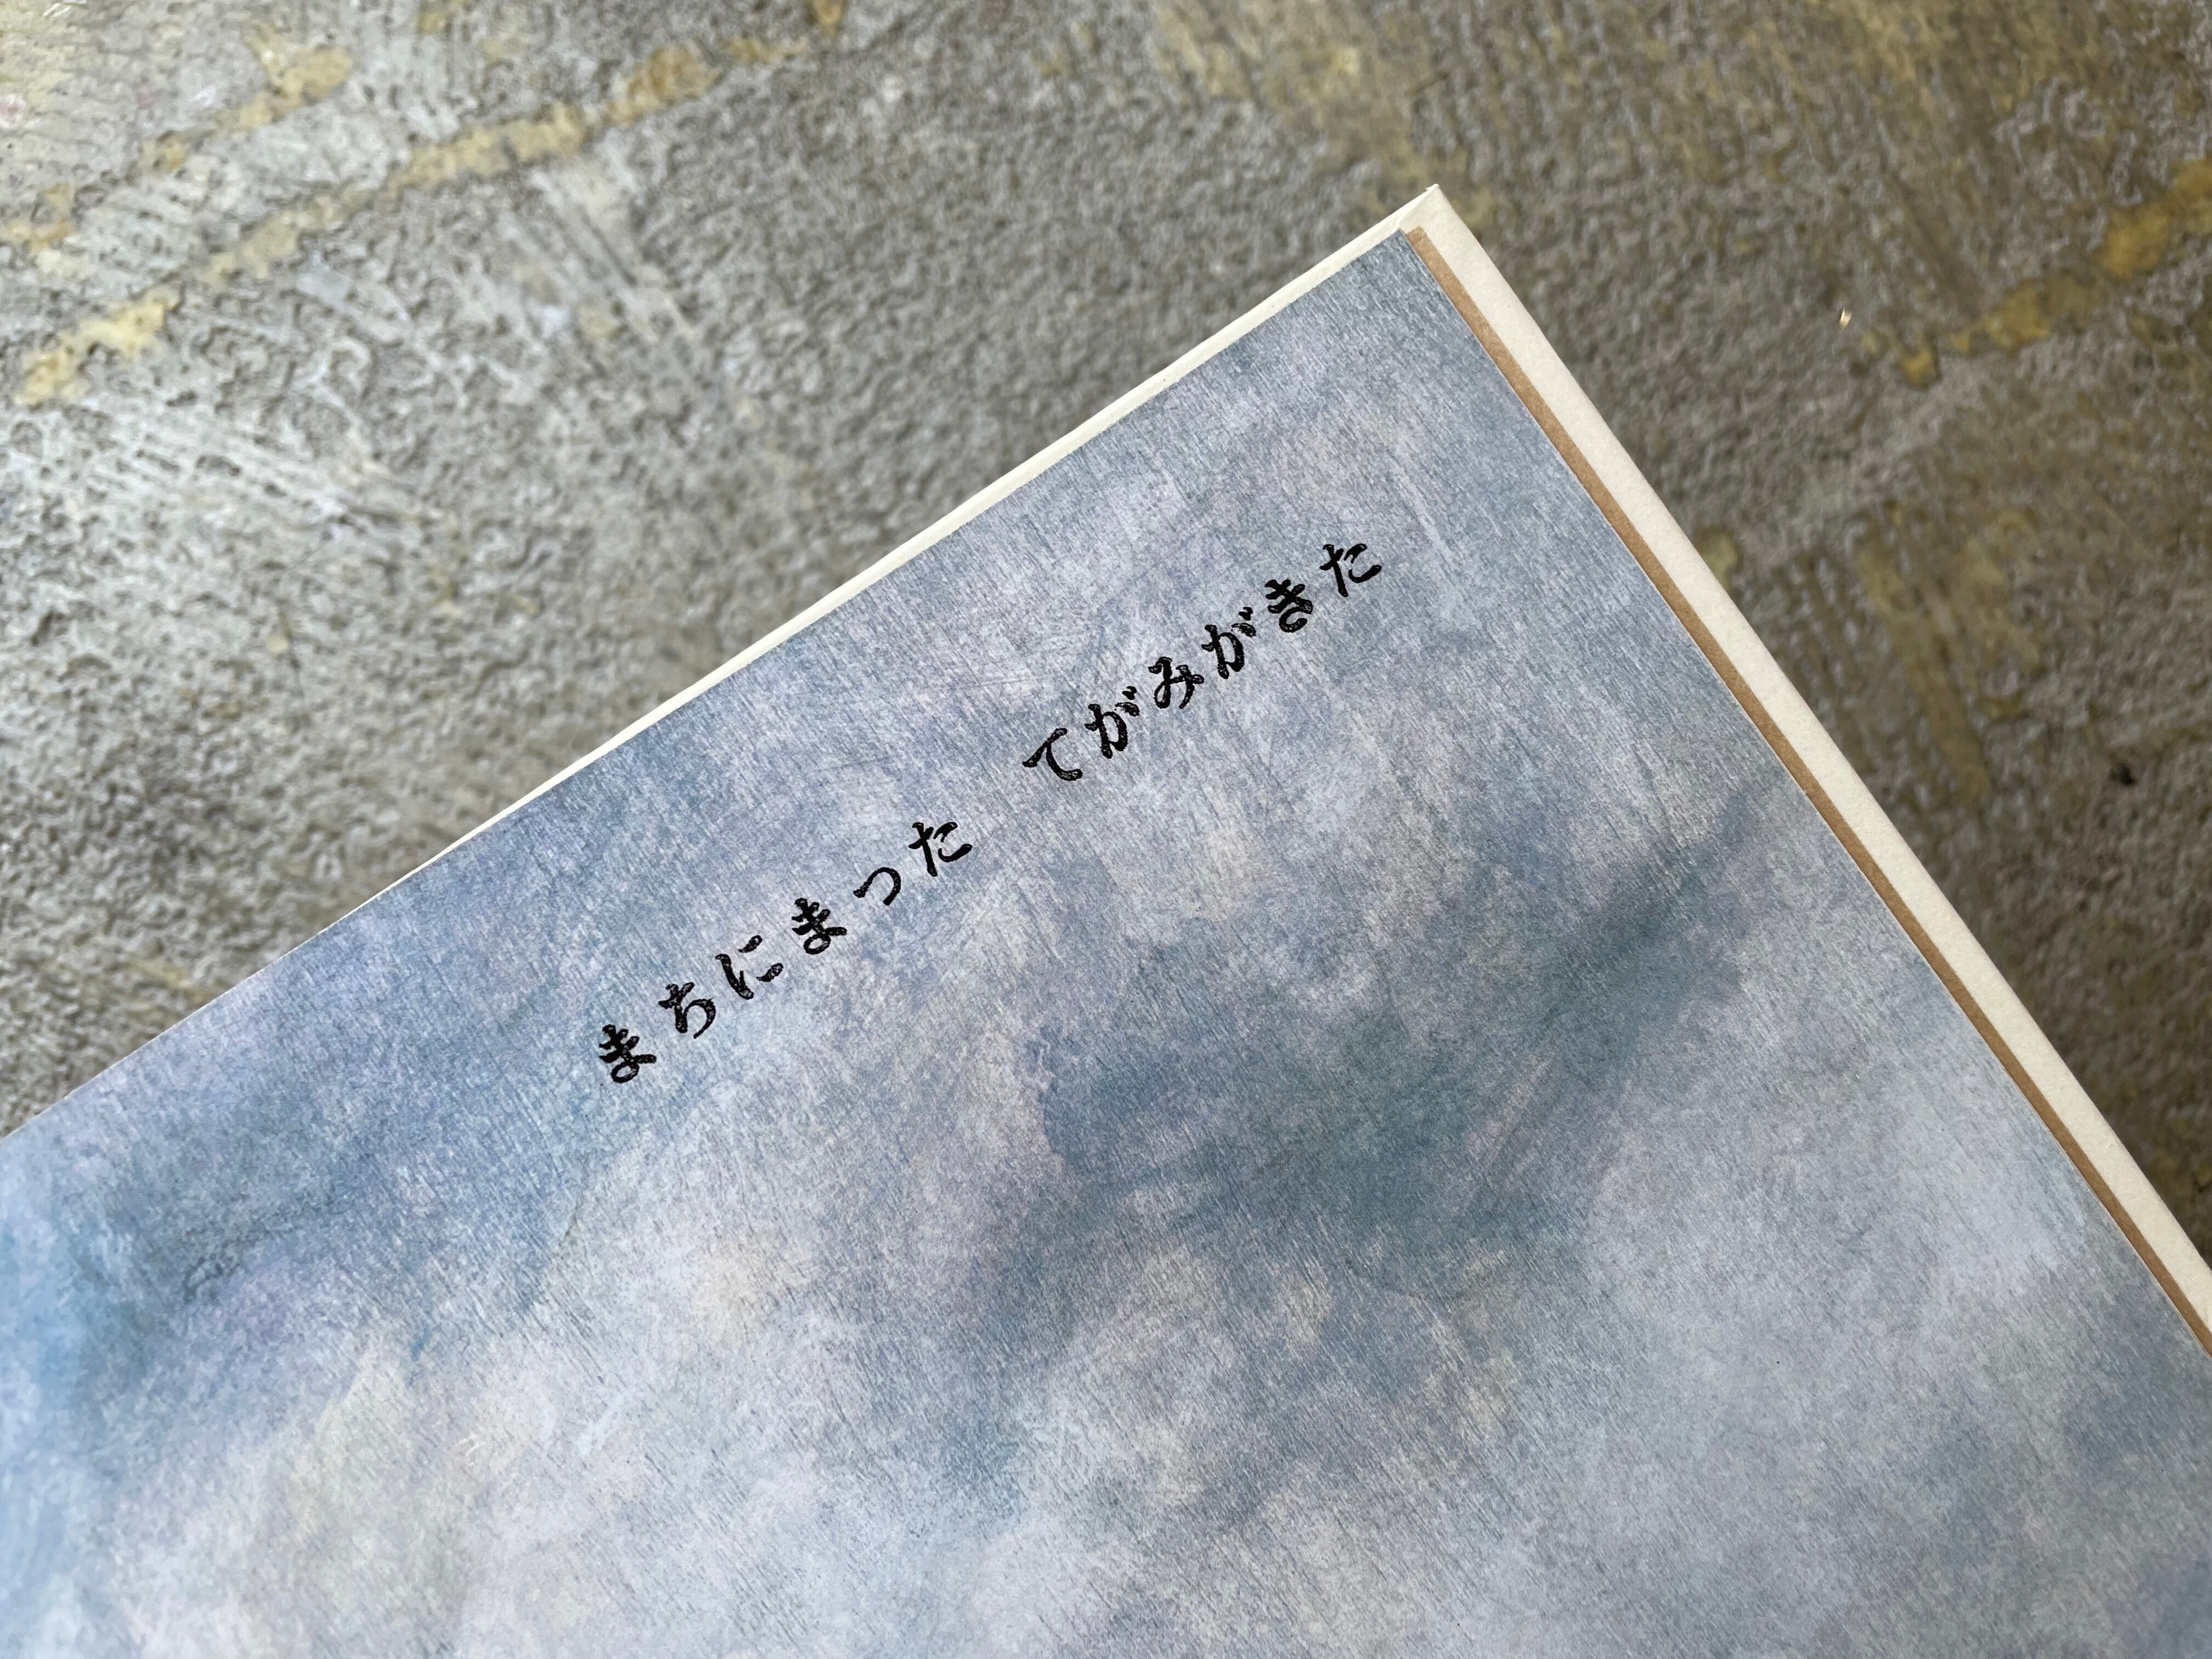 まちにまった　てがみがきた